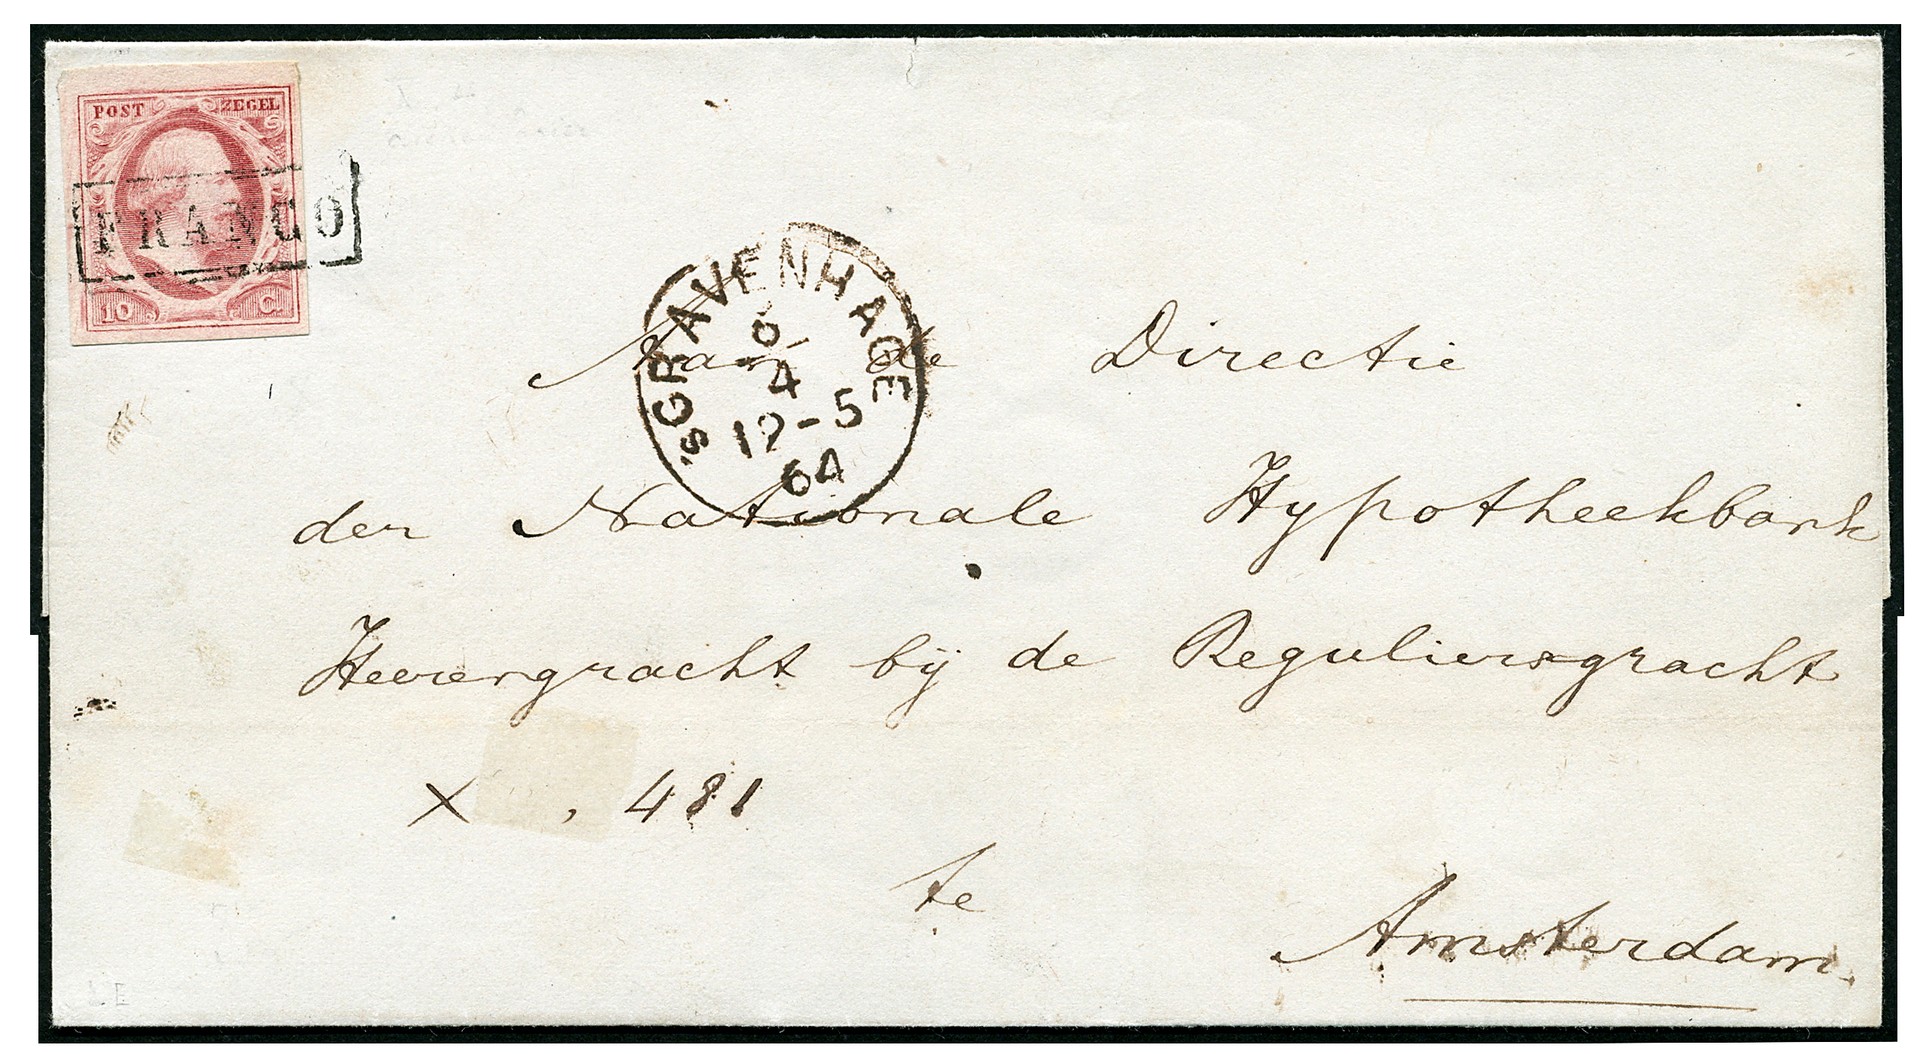 POST ZEGEL
FRANCO
10 C.
'SGRAVENHAGE
4
12-5
64
Aan de Directie
der Nationale Hypotheekbank
Heerengracht bij de Reguliersgracht
X , 481
te
Amsterdam.